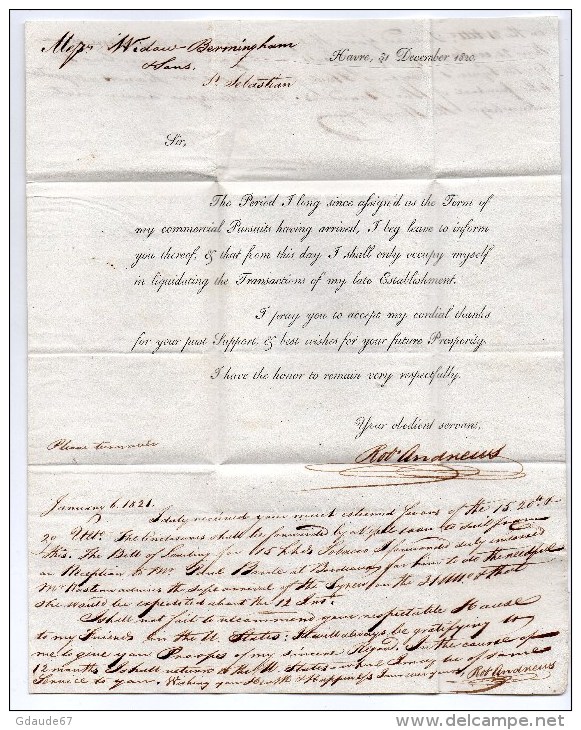 Messrs Widow Bermingham
& Sons.
St Sebastian
Havre, 31 December 1820.
Sir,
The Period I long since assign'd as the Term of
my commercial Pursuits having arrived, I beg leave to inform
you thereof, & that from this day I shall only occupy myself
in liquidating the Transactions of my late Establishment.
I pray you to accept my cordial thanks
for your past Support, & best wishes for your future Prosperity.
I have the honor to remain very respectfully.
Your obedient servant,
Please turn over
Robt Andrews
January 6. 1821.
I duly received your much esteemed favors of the 15. 20th &
The inclosures shall be forwarded by
this. The Bill of Lading for 15 hhds Tobacco I forwarded duly indorsed
on Reception to Mr at Bordeaux for him to do the needful
advises the safe arrival of the on the 31 Ulto & that
she would be expected about the 12 Inst.
I shall not fail to recommend your respectable House
to my Friends in the U. States; it will always be gratifying to
me to give you Proofs of my sincere Regard. In the course of
12 months I shall return to the U. States where I may be of some
Service to you. Wishing you Health & Happiness I am ever yours, Robt Andrews
Gdaude67
www.delcampe.net